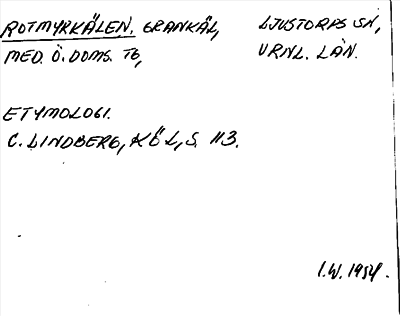 ROTMYRKÄLEN, GRANKÄL, LJUSTORPS SN,
MED. Ö. DOMS. TG, VRNL. LÄN.
ETYMOLOGI.
C. LINDBERG, KÖL, S. 113.
I.W. 1954.